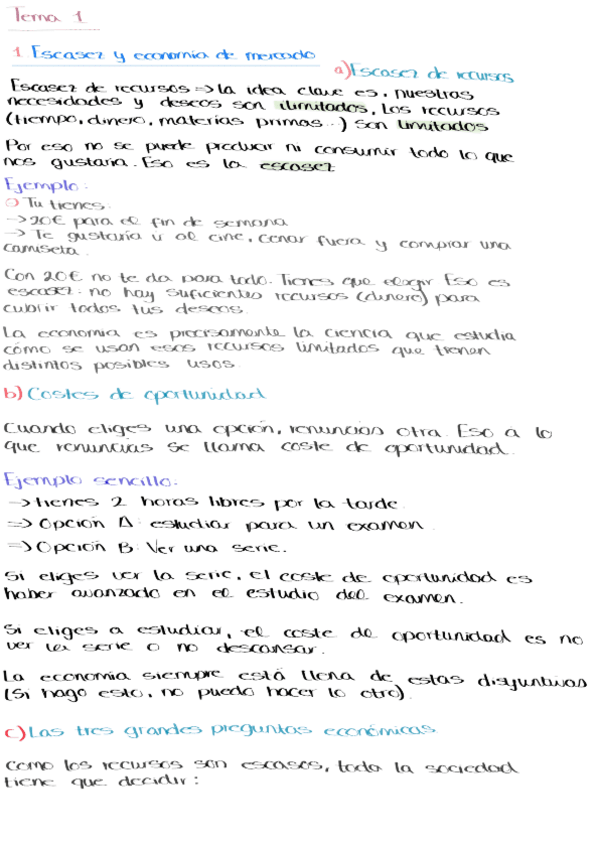 Tema 1
1 Escasez y economía de mercado
a) Escasez de recursos
Escasez de recursos => la idea clave es, nuestras
necesidades y deseos son ilimitados, los recursos
(tiempo, dinero, materias primas...) son limitados
Por eso no se puede producir ni consumir todo lo que
nos gustaría. Eso es la escasez
Ejemplo:
Tu tienes:
-> 20€ para el fin de semana
-> Te gustaría ir al cine, cenar fuera y comprar una
camiseta.
Con 20€ no te da para todo. Tienes que elegir Eso es
escasez: no hay suficientes recursos (dinero) para
cubrir todos tus deseos.
La economía es precisamente la ciencia que estudia
cómo se usan esos recursos limitados que tienen
distintos posibles usos.
b) Costes de oportunidad
Cuando eliges una opción, renuncias otra. Eso a lo
que renuncias se llama coste de oportunidad.
Ejemplo sencillo:
-> tienes 2 horas libres por la tarde.
=> Opción A: estudiar para un examen.
=> Opción B: Ver una serie.
Si eliges ver la serie, el coste de oportunidad es
haber avanzado en el estudio del examen.
Si eliges a estudiar, el coste de oportunidad es no
ver la serie o no descansar.
La economía siempre está llena de estas disyuntivas
(Si hago esto, no puedo hacer lo otro).
c) Las tres grandes preguntas económicas
Como los recursos son escasos, toda la sociedad
tiene que decidir: